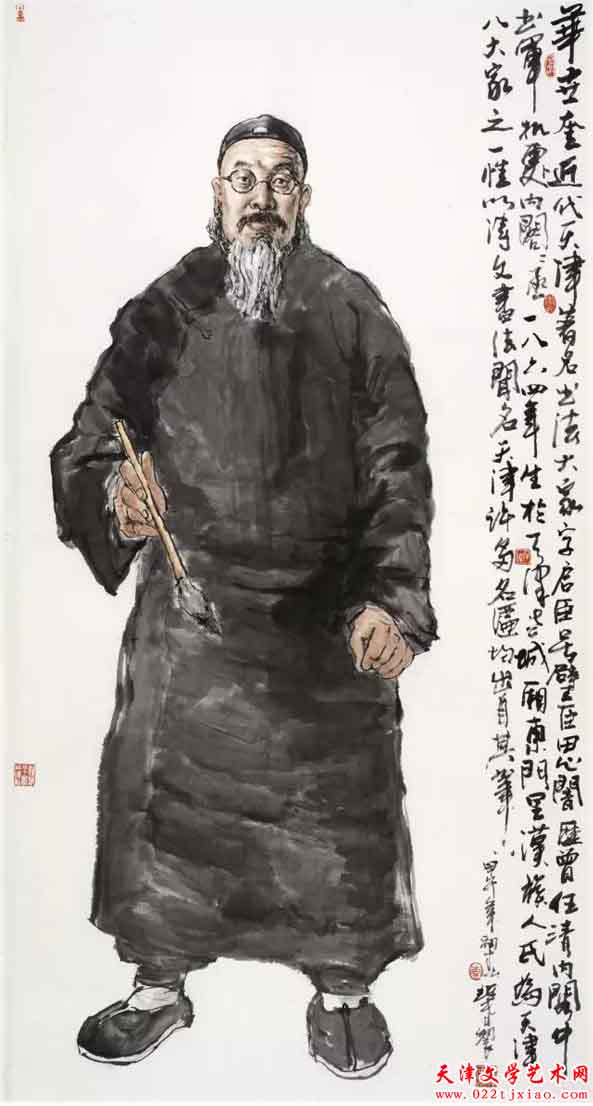 華世奎近代天津著名书法大家字启臣号璧臣思闇歷曾任清内閣中
书軍机處内閣閣丞一八六四年生於天津老城厢東門里漢族人氏為天津
八大家之一惟以诗文書法聞名天津许多名匾均出自其筆
甲午年
天津文学艺术网
www.022tjxiao.com